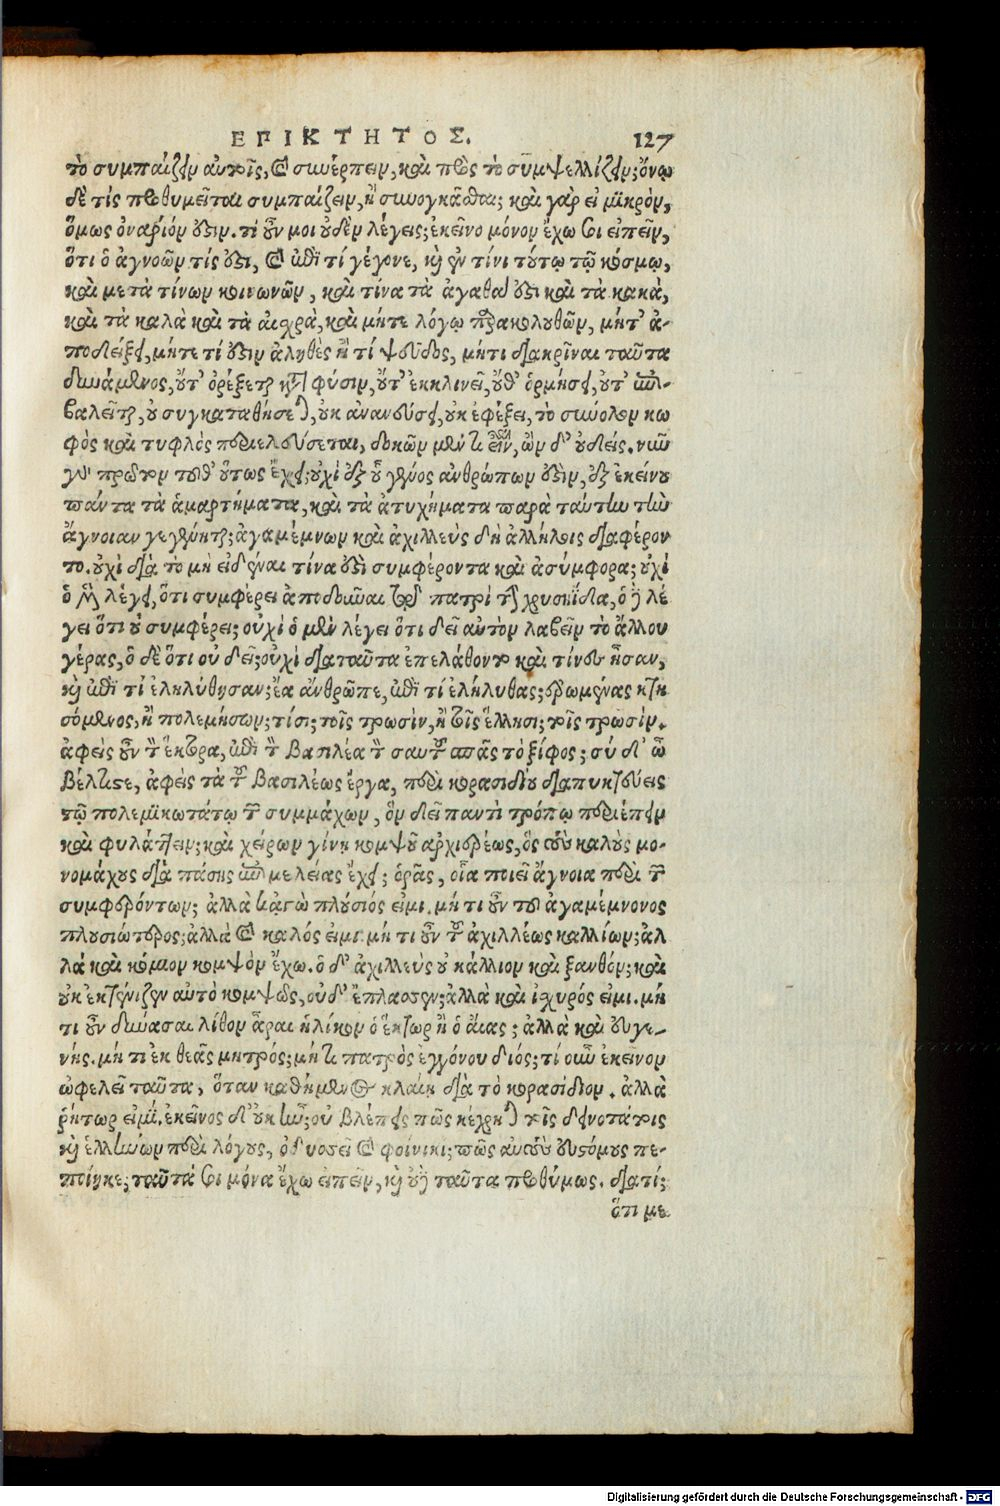 ΕΠΙΚΤΗΤΟΣ. 127
τὸ συμπαίζειν αὐτοῖς, καὶ συνέρπειν, καὶ πρὸς τὸ συμψελλίζειν; ὄνῳ
δὲ τίς προθυμεῖται συμπαίζειν, ἢ συνογκᾶσθαι; καὶ γὰρ εἰ μικρὸν,
ὅμως ὀνάριόν ἐστιν. τί οὖν μοι οὐδὲν λέγεις; ἐκεῖνο μόνον ἔχω σοι εἰπεῖν,
ὅτι ὁ ἀγνοῶν τίς ἐστι, καὶ ἐπὶ τί γέγονε, καὶ ἐν τίνι τούτῳ τῷ κόσμῳ,
καὶ μετὰ τίνων κοινωνῶν, καὶ τίνα τὰ ἀγαθά ἐστι καὶ τὰ κακὰ,
καὶ τὰ καλὰ καὶ τὰ αἰσχρὰ, καὶ μήτε λόγῳ παρακολουθῶν, μήτ' ἀ-
ποδείξει, μήτε τί ἐστιν ἀληθὲς ἢ τί ψεῦδος, μήτι διακρῖναι ταῦτα
δυνάμενος, οὔτ' ὀρέξεται κατὰ φύσιν, οὔτ' ἐκκλινεῖ, οὔθ' ὁρμήσει, οὔτ' ἐπι-
βαλεῖται, οὐ συγκαταθήσεται, οὐκ ἀνανεύσει, οὐκ ἐφέξει, τὸ σύνολον κω
φὸς καὶ τυφλὸς περιελεύσεται, δοκῶν μέν τι εἶναι, ὢν δ' οὐδείς. νῦν
γὰρ πρῶτον τοῦθ' οὕτως ἔχει; οὐχὶ ἐξ οὗ γένος ἀνθρώπων ἐστὶν, ἐξ ἐκείνου
πάντα τὰ ἁμαρτήματα, καὶ τὰ ἀτυχήματα παρὰ ταύτην τὴν
ἄγνοιαν γεγένηται; ἀγαμέμνων καὶ ἀχιλλεὺς δὴ ἀλλήλοις διαφέρον
το. οὐχὶ διὰ τὸ μὴ εἰδέναι τίνα ἐστὶ συμφέροντα καὶ ἀσύμφορα; οὐχὶ
ὁ μὲν λέγει, ὅτι συμφέρει ἀποδοῦναι τῷ πατρὶ τὴν χρυσηΐδα, ὁ δὲ λέ
γει ὅτι οὐ συμφέρει; οὐχὶ ὁ μὲν λέγει ὅτι δεῖ αὐτὸν λαβεῖν τὸ ἄλλου
γέρας, ὁ δὲ ὅτι οὐ δεῖ; οὐχὶ διὰ ταῦτα ἐπελάθοντο καὶ τίνες ἦσαν,
καὶ ἐπὶ τί ἐληλύθησαν; ἔα ἄνθρωπε, ἐπὶ τί ἐλήλυθας; ἐρωμένας κτη
σόμενος, ἢ πολεμήσων; τίσι; τοῖς τρωσὶν, ἢ τοῖς ἕλλησι; τοῖς τρωσίν.
ἀφεὶς οὖν τὸν ἕκτορα, ἐπὶ τὸν βασιλέα τὸν σαυτοῦ σπᾷς τὸ ξίφος; σύ δ' ὦ
βέλτιστε, ἀφεὶς τὰ τοῦ βασιλέως ἔργα, περὶ κορασιδίου διαπυκτεύεις
τῷ πολεμικωτάτῳ τῶν συμμάχων, ὃν δεῖ παντὶ τρόπῳ περιέπειν
καὶ φυλάττειν; καὶ χείρων γίνῃ κομψοῦ ἀρχιερέως, ὃς τοὺς καλοὺς μο-
νομάχους διὰ πάσης ἐπιμελείας ἔχει; ὁρᾷς, οἷα ποιεῖ ἄγνοια περὶ τῶν
συμφερόντων; ἀλλὰ κἀγὼ πλούσιός εἰμι. μή τι οὖν τοῦ ἀγαμέμνονος
πλουσιώτερος; ἀλλὰ καὶ καλός εἰμι. μή τι οὖν τοῦ ἀχιλλέως καλλίων; ἀλ
λὰ καὶ κόμιον κομψὸν ἔχω. ὁ δ' ἀχιλλεὺς οὐ κάλλιον καὶ ξανθόν; καὶ
οὐκ ἐκτένιζεν αὐτὸ κομψῶς, οὐδ' ἔπλασσεν; ἀλλὰ καὶ ἰσχυρός εἰμι. μή
τι οὖν δύνασαι λίθον ἆραι ἡλίκον ὁ ἕκτωρ ἢ ὁ αἴας; ἀλλὰ καὶ εὐγε-
νής. μή τι ἐκ θεᾶς μητρός; μή τι πατρὸς ἐγγόνου διός; τί οὖν ἐκεῖνον
ὠφελεῖ ταῦτα, ὅταν καθήμενος κλαίῃ διὰ τὸ κορασίδιον. ἀλλὰ
ῥήτωρ εἰμί. ἐκεῖνος δ' οὐκ ἦν; οὐ βλέπεις πῶς κέχρηται τοῖς δεινοτάτοις
τῶν ἑλλήνων περὶ λόγους, ὀδυσσεῖ καὶ φοίνικι; πῶς αὐτοὺς ἀστόμους πε-
ποίηκε; ταῦτά σοι μόνα ἔχω εἰπεῖν, καὶ οὐδὲ ταῦτα προθύμως. διατί;
ὅτι με
Digitalisierung gefördert durch die Deutsche Forschungsgemeinschaft - DFG